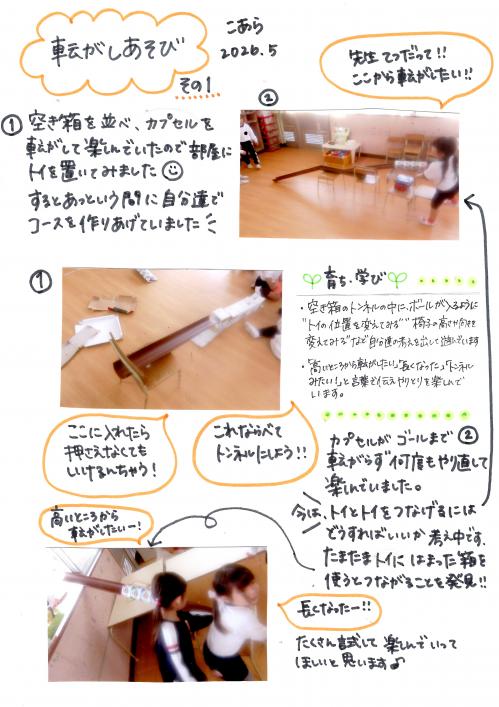 転がしあそび
その1
こあら
2026.5
先生 てつだって!!
ここから転がしたい!!
① 空き箱を並べ、カプセルを
転がして楽しんでいたので部屋に
トイを置いてみました
するとあっという間に自分達で
コースを作りあげていました
②
①
育ち・学び
・空き箱のトンネルの中に、ボールが入るように
"トイの位置を変えてみる" "椅子の高さや向きを
変えてみる"など自分達の考えを出して遊んでいます
・「高いところから転がしたい」「長くなった」「トンネル
みたい!」と言葉で伝えやりとりを楽しんで
います。
ここに入れたら
押さえなくても
いけるんちゃう!
これならべて
トンネルにしよう!!
カプセルがゴールまで ②
転がらず何度もやり直して
楽しんでいました。
今は、トイとトイをつなげるには
どうすればいいか 考え中です。
たまたまトイに はまった箱を
使うとつながることを発見!!
高いところから
転がしたいー!
長くなったー!!
たくさん試して 楽しんでいって
ほしいと思います♪